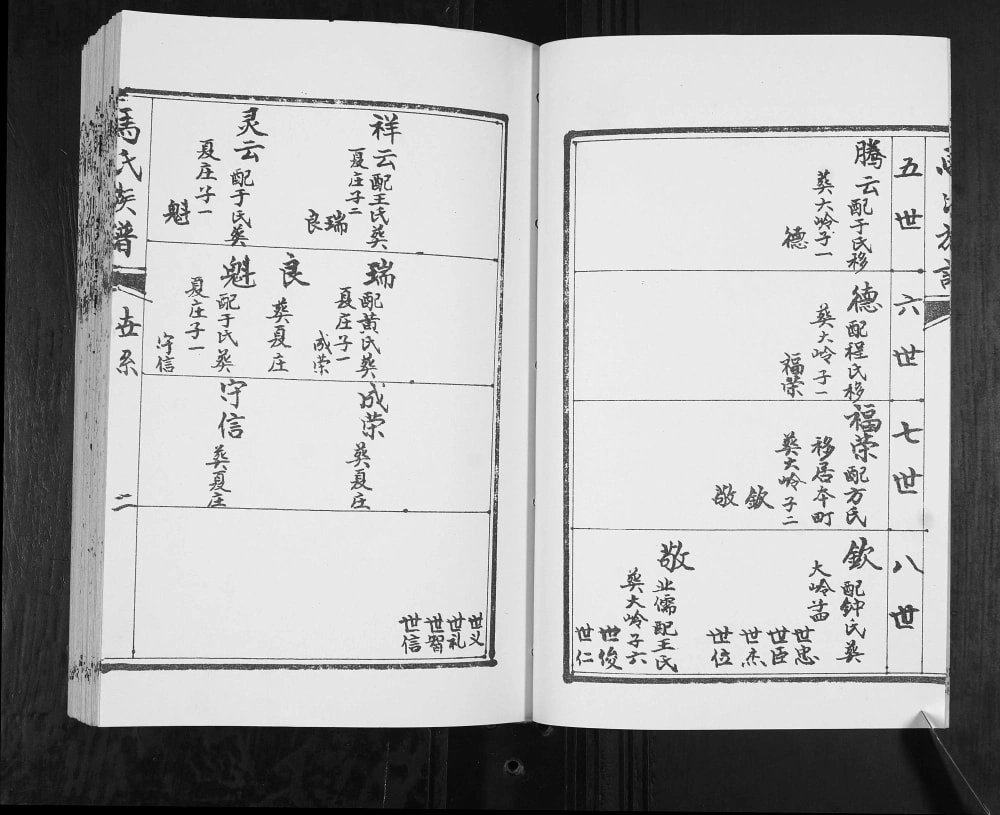 五世
腾云配于氏移
葬大岭子一
德
六世
德配程氏移
葬大岭子一
福荣
七世
福荣配方氏
移居本町
葬大岭子二
钦
敬
八世
钦配钟氏葬
大岭
世忠
世臣
世杰
世位
敬业儒配王氏
葬大岭子六
世俊
世仁
祥云配王氏葬
夏庄子二
瑞
良
灵云配于氏葬
夏庄子一
魁
瑞配黄氏葬
夏庄子一
成荣
良葬夏庄
魁配于氏葬
夏庄子一
守信
成荣葬夏庄
守信葬夏庄
世义
世礼
世智
世信
馬氏族谱
世系
二